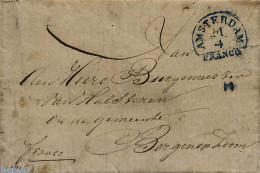 AMSTERDAM
21
4
FRANCO
Van
den Heere Burgemeester
van Halsteren
in de gemeente
Bergen op Zoom
franco